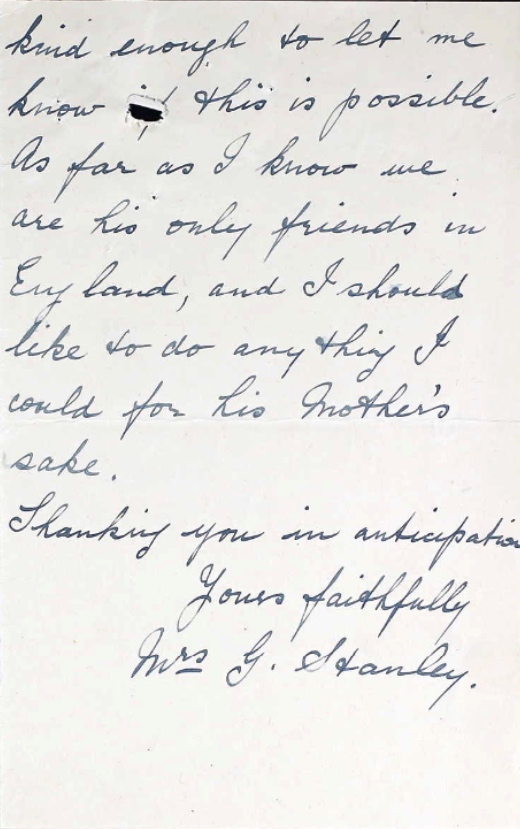 kind enough to let me
know if this is possible.
As far as I know we
are his only friends in
England, and I should
like to do anything I
could for his Mother's
sake.
Thanking you in anticipation
Yours faithfully
Mrs G. Stanley.